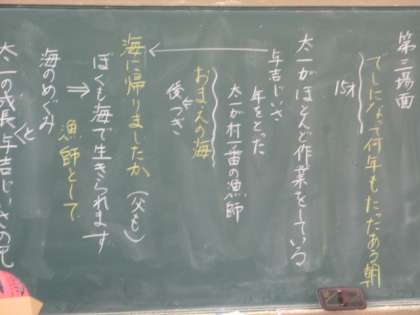 第三場面
でしになって何年もたったある朝
15才
太一がほとんど作業をしている
与吉じいさ
年をとった
太一が村一番の漁師
おまえの海
後つぎ
海に帰りましたか（父も）
ぼくも海で生きられます
⇒漁師として
海のめぐみ
太一の成長と与吉じいさの死